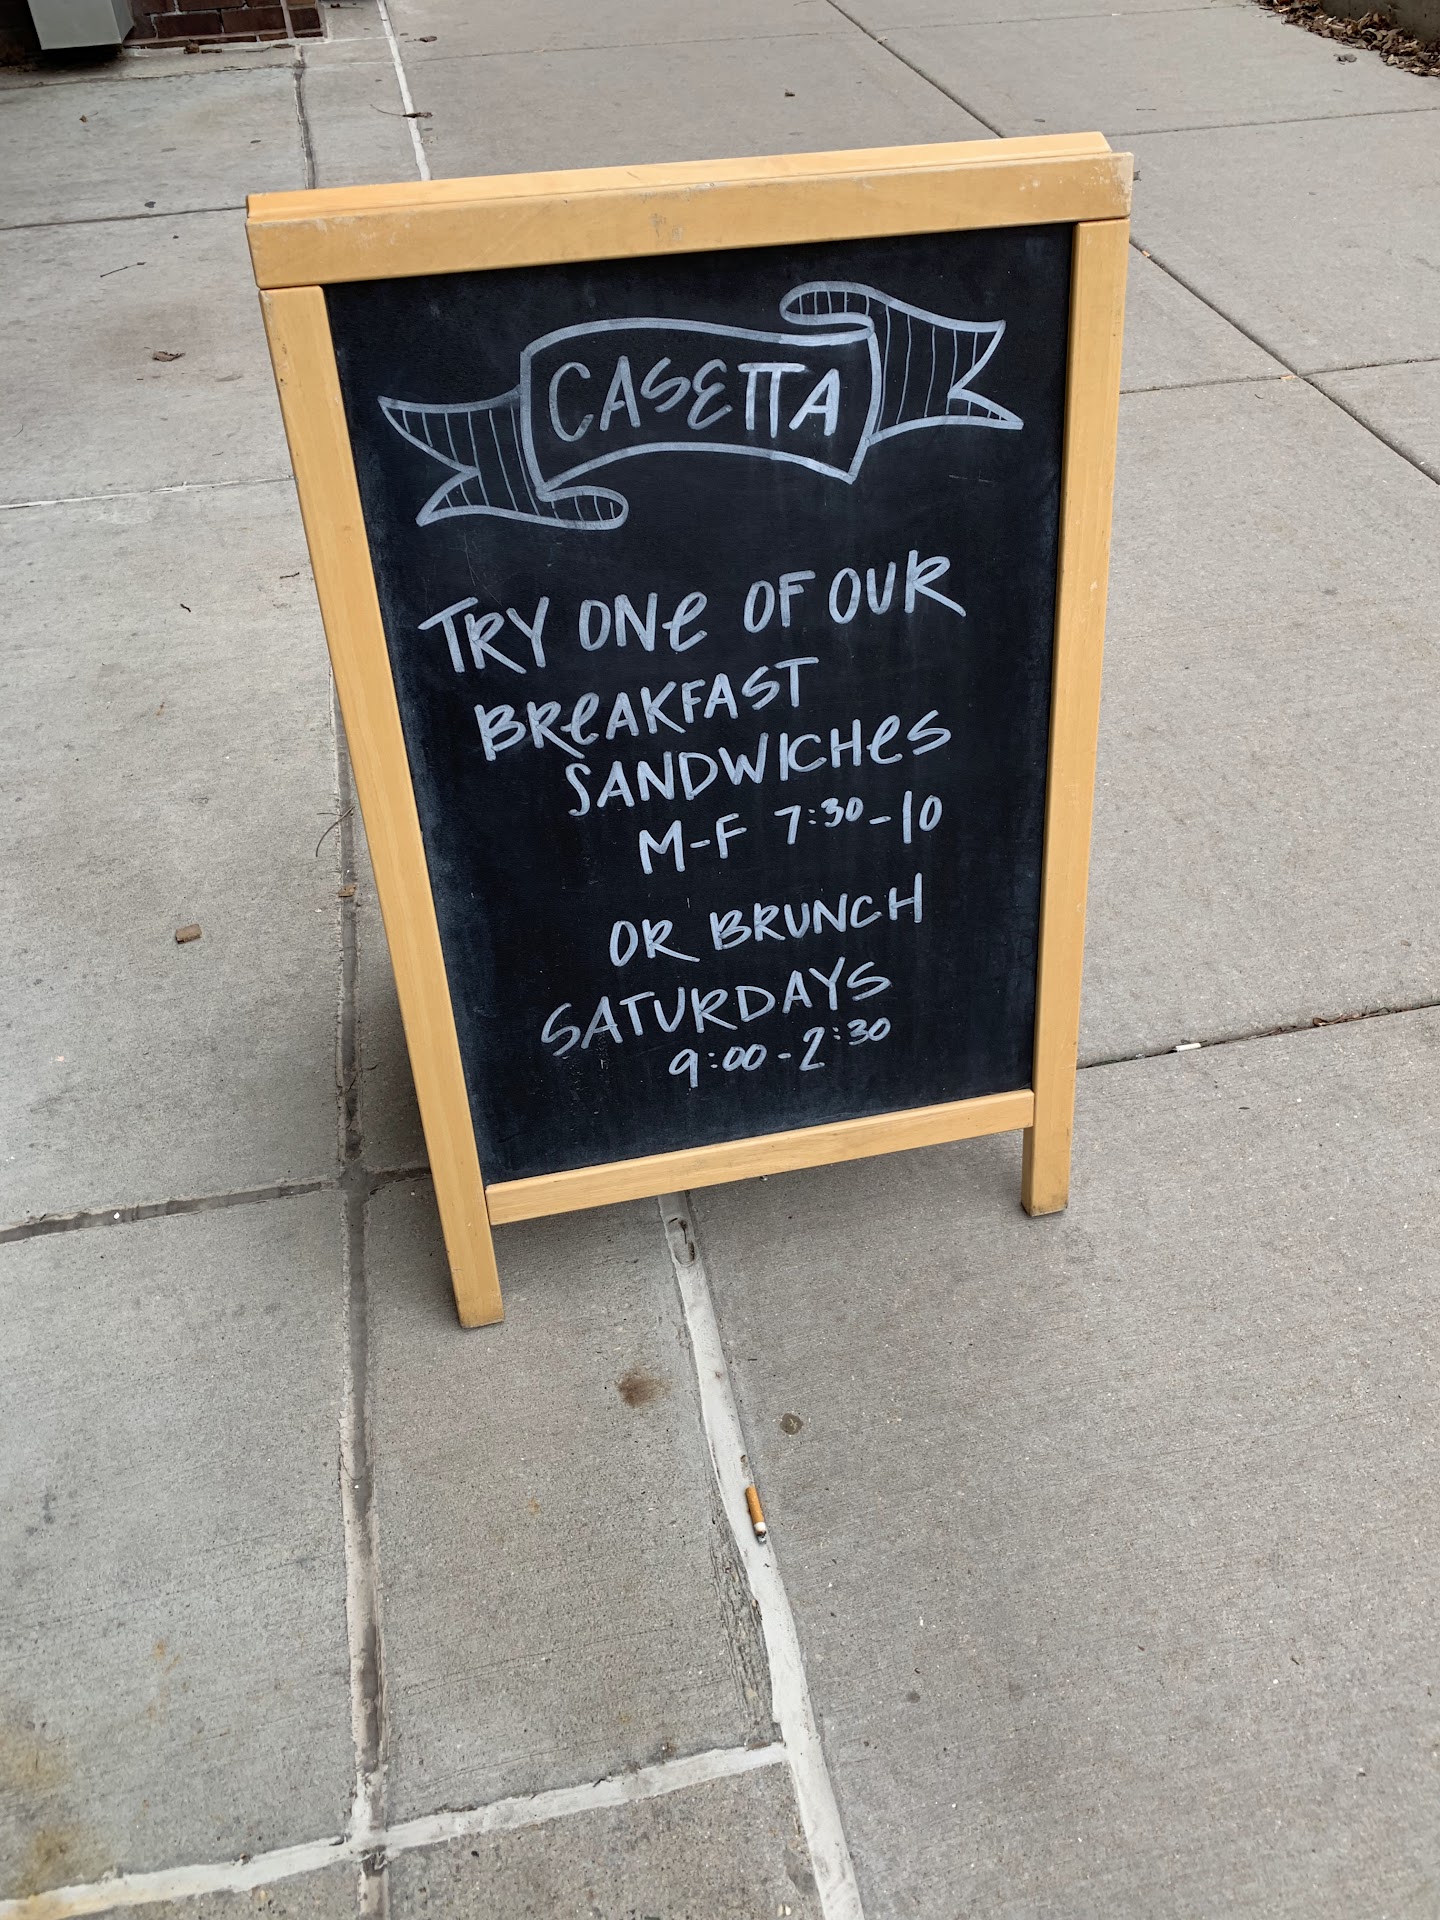 CASETTA
TRY ONe OF OUR
BReAKFAST
SANDWICHeS
M-F 7:30-10
OR BRUNCH
SATURDAYS
9:00-2:30